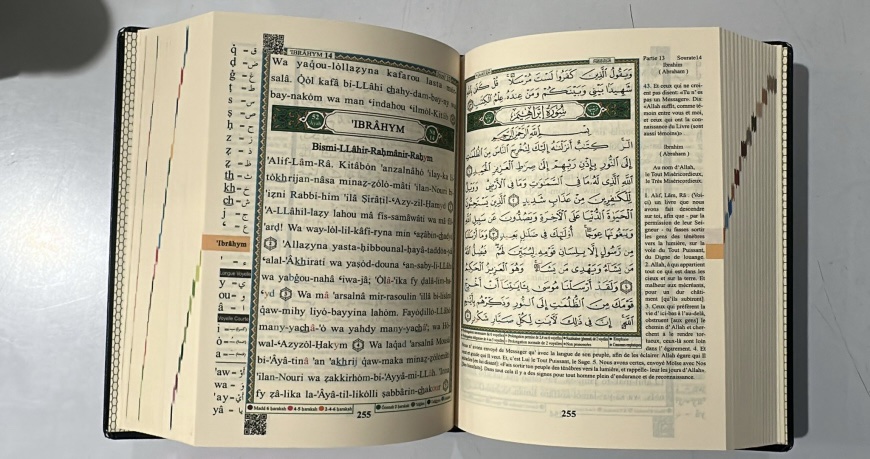 'IBRÂHYM 14
Wa yaqou-lôllazyna kafarou lasta
salâ. Qôl kafâ bi-LLâhi chahy-dam-bay-ny
bay-nakôm wa man ʿindahou ʿilmôl-Kitâb
'IBRÂHYM
Bismi-LLâhir-Rahmânir-Rahym
'Alif-Lâm-Râ. Kitâbôn 'anzalnâhô 'ilay-ka
tôkhrijan-nâsa minaz-zôlô-mâti 'ilan-Nouri
'izni Rabbi-him 'ilâ Sirâtil-ʿAzy-zil-Hamyd 1
'A-LLâhil-lazy lahou mâ fis-samâwâti wa mâ
'ard! Wa way-lôl-lil-kâfi-ryna min ʿazâbin-
2 'Allazyna yasta-hibbounal-hayâ-taddôn-
ʿalal-'Âkhirati wa yasôd-douna ʿan-saby-li-LLâ
wa yabgou-nahâ ʿiwa-jâ; 'Ôlâ-'ika fy dalâ-lim-
3 Wa mâ 'arsalnâ mir-rasoulin 'illâ bi-lisân
qaw-mihy liyô-bayyina lahôm. Fayôdillo-LLâh
many-yachâ-'ô wa yahdy many-yachâ', wa Hô
wal-ʿAzyzôl-Hakym 4 Wa laqad 'arsalnâ Mous
bi-'Âyâ-tinâ 'an 'akhrij qaw-maka minaz-zôlômâti
'ilan-Nouri wa zakkirhôm-bi-'Ayyâ-mi-LLâh. 'Inna
fy zâ-lika la-'Âyâ-til-likôlli sabbârin-chakour
255
q – ق
d – ض
g – غ
t – ط
s – ص
h – ح
z – ظ
r – ر
z – ذ
th – ث
kh – خ
ch – ش
j – ج
ʿ – ع
'Ibrâhym
Longue Voyelle
y – ي
ou – و
â – ا
Voyelle Courte
i
ô
a
'aw – أو
wâ – وا
'ay – أي
yâ – يا
وَيَقُولُ الَّذِينَ كَفَرُوا لَسْتَ مُرْسَلًا قُلْ كَفَىٰ
شَهِيدًا بَيْنِي وَبَيْنَكُمْ وَمَنْ عِندَهُ عِلْمُ الْكِتَابِ
سُورَةُ إِبْرَاهِيمَ
بِسْمِ اللَّهِ الرَّحْمَٰنِ الرَّحِيمِ
الر كِتَابٌ أَنزَلْنَاهُ إِلَيْكَ لِتُخْرِجَ النَّاسَ مِنَ الظُّلُمَاتِ
إِلَى النُّورِ بِإِذْنِ رَبِّهِمْ إِلَىٰ صِرَاطِ الْعَزِيزِ الْحَمِيدِ
اللَّهِ الَّذِي لَهُ مَا فِي السَّمَاوَاتِ وَمَا فِي الْأَرْضِ وَوَيْلٌ
لِّلْكَافِرِينَ مِنْ عَذَابٍ شَدِيدٍ الَّذِينَ يَسْتَحِبُّونَ
الْحَيَاةَ الدُّنْيَا عَلَى الْآخِرَةِ وَيَصُدُّونَ عَن سَبِيلِ اللَّهِ
وَيَبْغُونَهَا عِوَجًا أُولَٰئِكَ فِي ضَلَالٍ بَعِيدٍ وَمَا أَرْسَلْنَا
مِن رَّسُولٍ إِلَّا بِلِسَانِ قَوْمِهِ لِيُبَيِّنَ لَهُمْ فَيُضِلُّ اللَّهُ
مَن يَشَاءُ وَيَهْدِي مَن يَشَاءُ وَهُوَ الْعَزِيزُ الْحَكِيمُ
وَلَقَدْ أَرْسَلْنَا مُوسَىٰ بِآيَاتِنَا أَنْ أَخْرِجْ
قَوْمَكَ مِنَ الظُّلُمَاتِ إِلَى النُّورِ وَذَكِّرْهُم بِأَيَّامِ
اللَّهِ إِنَّ فِي ذَٰلِكَ لَآيَاتٍ لِّكُلِّ صَبَّارٍ شَكُورٍ
255
Partie 13 Sourate14
Ibrahim
( Abraham )
43. Et ceux qui ne croi-
ent pas disent: «Tu n'es
pas un Messager». Dis:
«Allah suffit, comme té-
moin entre vous et moi,
et ceux qui ont la con-
naissance du Livre (sont
aussi témoins)».
Ibrahim
( Abraham )
Au nom d'Allah,
le Tout Miséricordieux,
le Très Miséricordieux.
1. Alif, Lâm, Râ . (Voi-
ci) un livre que nous
avons fait descendre
sur toi, afin que - par la
permission de leur Sei-
gneur - tu fasses sortir
les gens des ténèbres
vers la lumière, sur la
voie du Tout Puissant,
du Digne de louange.
2. Allah, à qui appartient
tout ce qui est dans les
cieux et sur la terre. Et
malheur aux mécréants,
pour un dur châti-
ment [qu'ils subiront]
3. Ceux qui préfèrent la
vie d'ici-bas à l'au-delà,
obstruent [aux gens] le
chemin d'Allah et cher-
chent à le rendre tor-
tueux, ceux-là sont loin
dans l' égarement. 4. Et
d'envoyé de Messager qu' avec la langue de son peuple, afin de les éclairer. Allah égare qui Il
veut et guide qui Il veut. Et, c'est Lui le Tout Puissant, le Sage. 5. Nous avons certes, envoyé Moïse avec Nos
«Fais sortir ton peuple des ténèbres vers la lumière, et rappelle- leur les jours d'Allah».
Dans tout cela il y a des signes pour tout homme plein d'endurance et de reconnaissance.